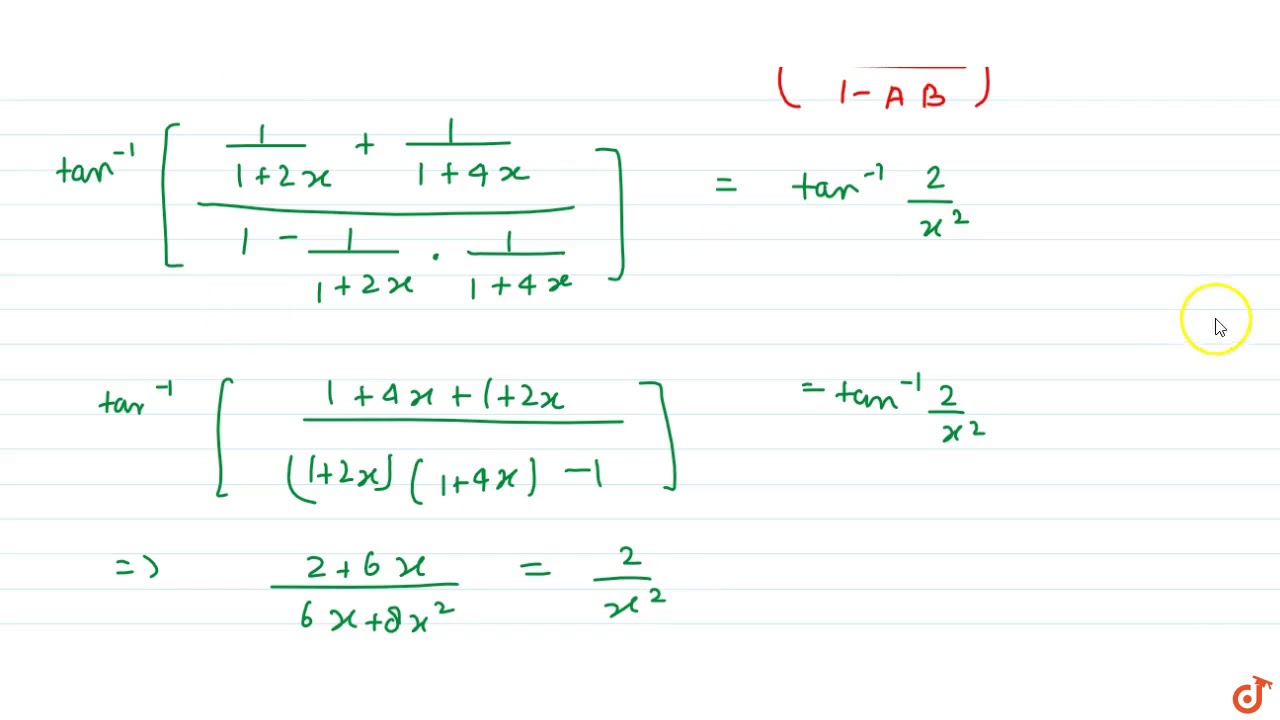 ( 1 - A B )
tan⁻¹ [ (1/(1+2x) + 1/(1+4x)) / (1 - 1/(1+2x) · 1/(1+4x)) ] = tan⁻¹ 2/x²
tan⁻¹ [ (1+4x+(1+2x) / ((1+2x)(1+4x) - 1) ] = tan⁻¹ 2/x²
=> (2+6x)/(6x+8x²) = 2/x²